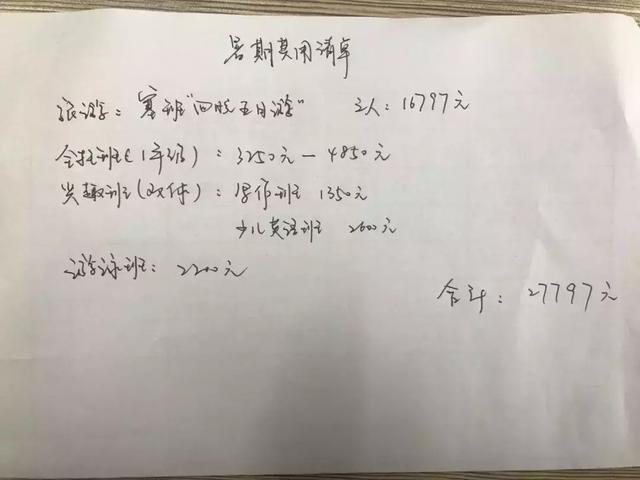 暑期费用清单
旅游：塞班"四晚五日游" 三人：16797元
全托班（1年级）：3250元—4850元
兴趣班（双休）：作班 1350元
少儿英语班 2600元
游泳班：2200元
合计：27797元